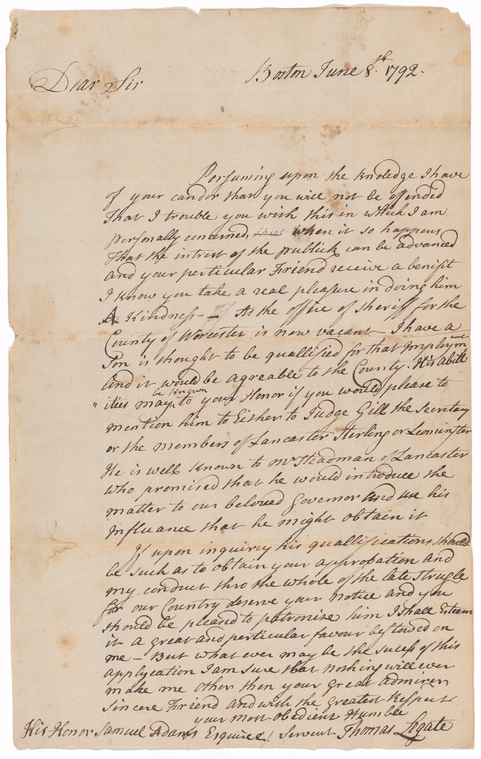 Boston June 8th 1792.
Dear Sir
Persuming upon the knoledge I have
of your candor that you will not be offended
That I trouble you with this in which I am
personally concerned when it so happens
That the intrest of the publick can be advanced
and your perticular Friend receive a benifit
I know you take a real pleasure in doing him
A Kindness — As the office of Sheriff for the
County of Worcester is now vacant I have a
Son is thought to be quallified for that Imployment
and it would be agreeable to the County. His abili
"ities may be known to your Honor if you would please to
mention him to Either to Judge Gill the Secretary
or the members of Lancaster Sterling or Leminster
He is well known to Mr Steadman of Lancaster
who promised that he would introduce the
matter to our beloved Governor and use his
Influance that he might obtain it
If upon inquiry his quallifications should
be such as to obtain your approbation and
my conduct thro the whole of the late strugle
for our Country deserve your notice and you
should be pleased to patronise him I shall Esteem
it a great and perticular favour bestowed on
me — But what ever may be the sucess of this
application I am sure that nothing will ever
make me other then your great admirer
Sincere Friend and with the greatest Respect
your most obedient Humble
His Honor Samuel Adams Esquire Servent Thomas Legate